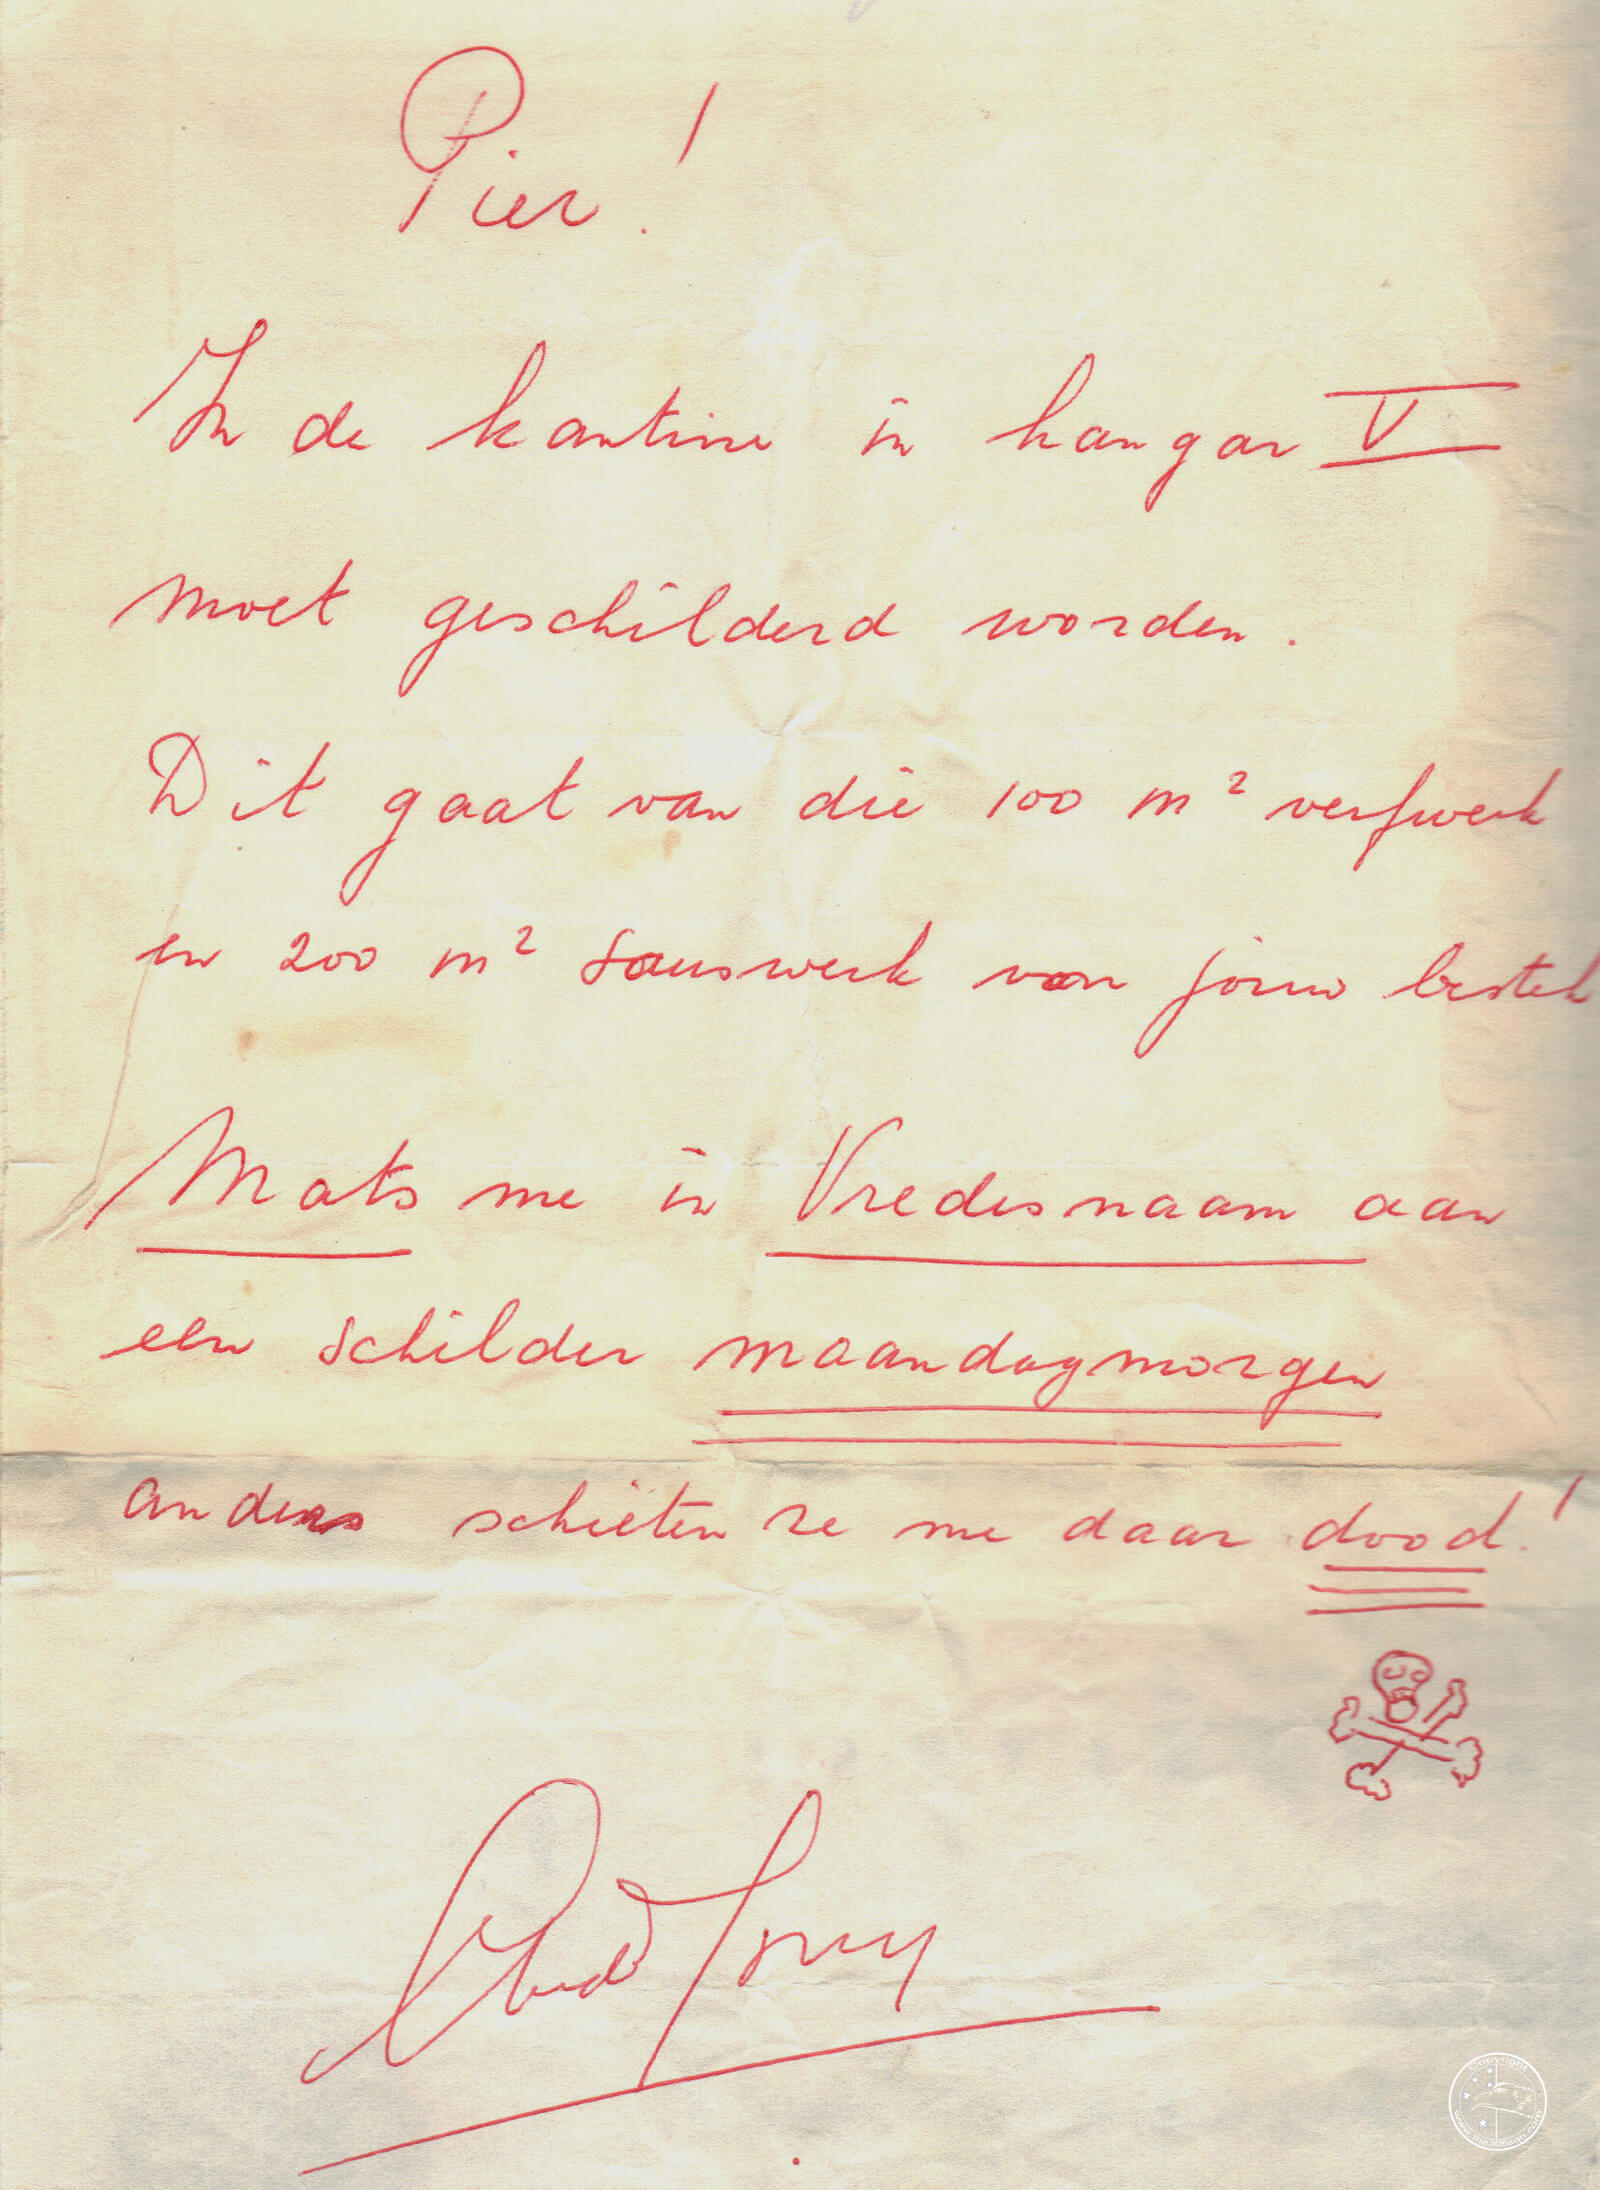 Pier!
In de kantine in hangar V
moet geschilderd worden.
Dit gaat van die 100 m² verfwerk
en 200 m² sauswerk van jouw bestek
Mats me in Vredesnaam aan
een schilder maandagmorgen
anders schieten ze me daar dood!
Copyright